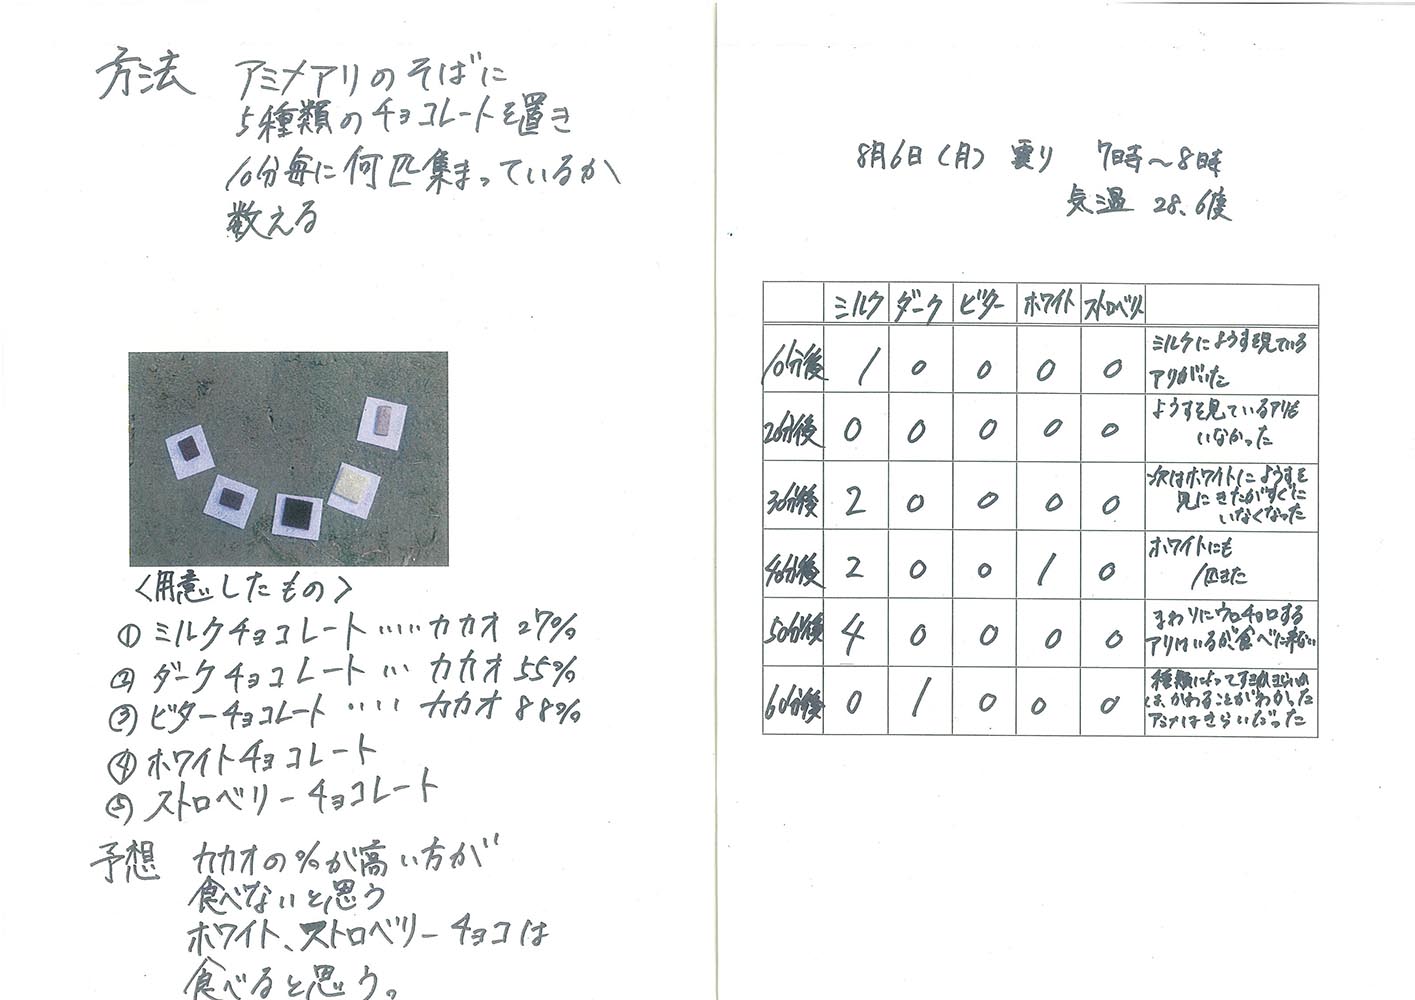 方法 アミメアリのそばに
5種類のチョコレートを置き
10分毎に何匹集まっているか
数える
<用意したもの>
① ミルクチョコレート ‥‥ カカオ 27%
② ダークチョコレート … カカオ 55%
③ ビターチョコレート ‥‥ カカオ 88%
④ ホワイトチョコレート
⑤ ストロベリーチョコレート
予想 カカオの%が高い方が
食べないと思う
ホワイト、ストロベリーチョコは
食べると思う。
8月6日(月) 曇り 7時~8時
気温 28.6度
ミルク ダーク ビター ホワイト ストロベリー
10分後 1 0 0 0 0 ミルクにようすを見ている
アリがいた
20分後 0 0 0 0 0 ようすを見ているアリも
いなかった
30分後 2 0 0 0 0 次はホワイトにようすを
見にきたがすぐに
いなくなった
40分後 2 0 0 1 0 ホワイトにも
1匹きた
50分後 4 0 0 0 0 まわりにウロチョロする
アリはいるが食べに来ない
60分後 0 1 0 0 0 種類によってすききらい
は、かわることがわかった
アミメはきらいだった